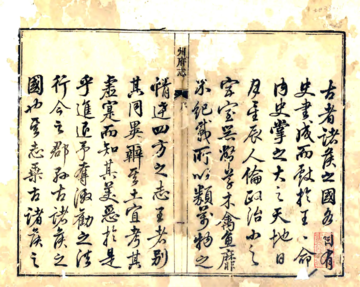 古者諸侯之國各自有
史書成而獻於王王命
内史掌之大之天地日
月星辰人倫政治小之
室器草木禽魚靡
不紀載所以類萬物之
情達四方之志王者別
其同異辨其土宜考其
虛寔而知其美惡於是
乎進退予奪激勸之法
行今之郡古諸侯之
國也其志乘古諸侯之
州府志